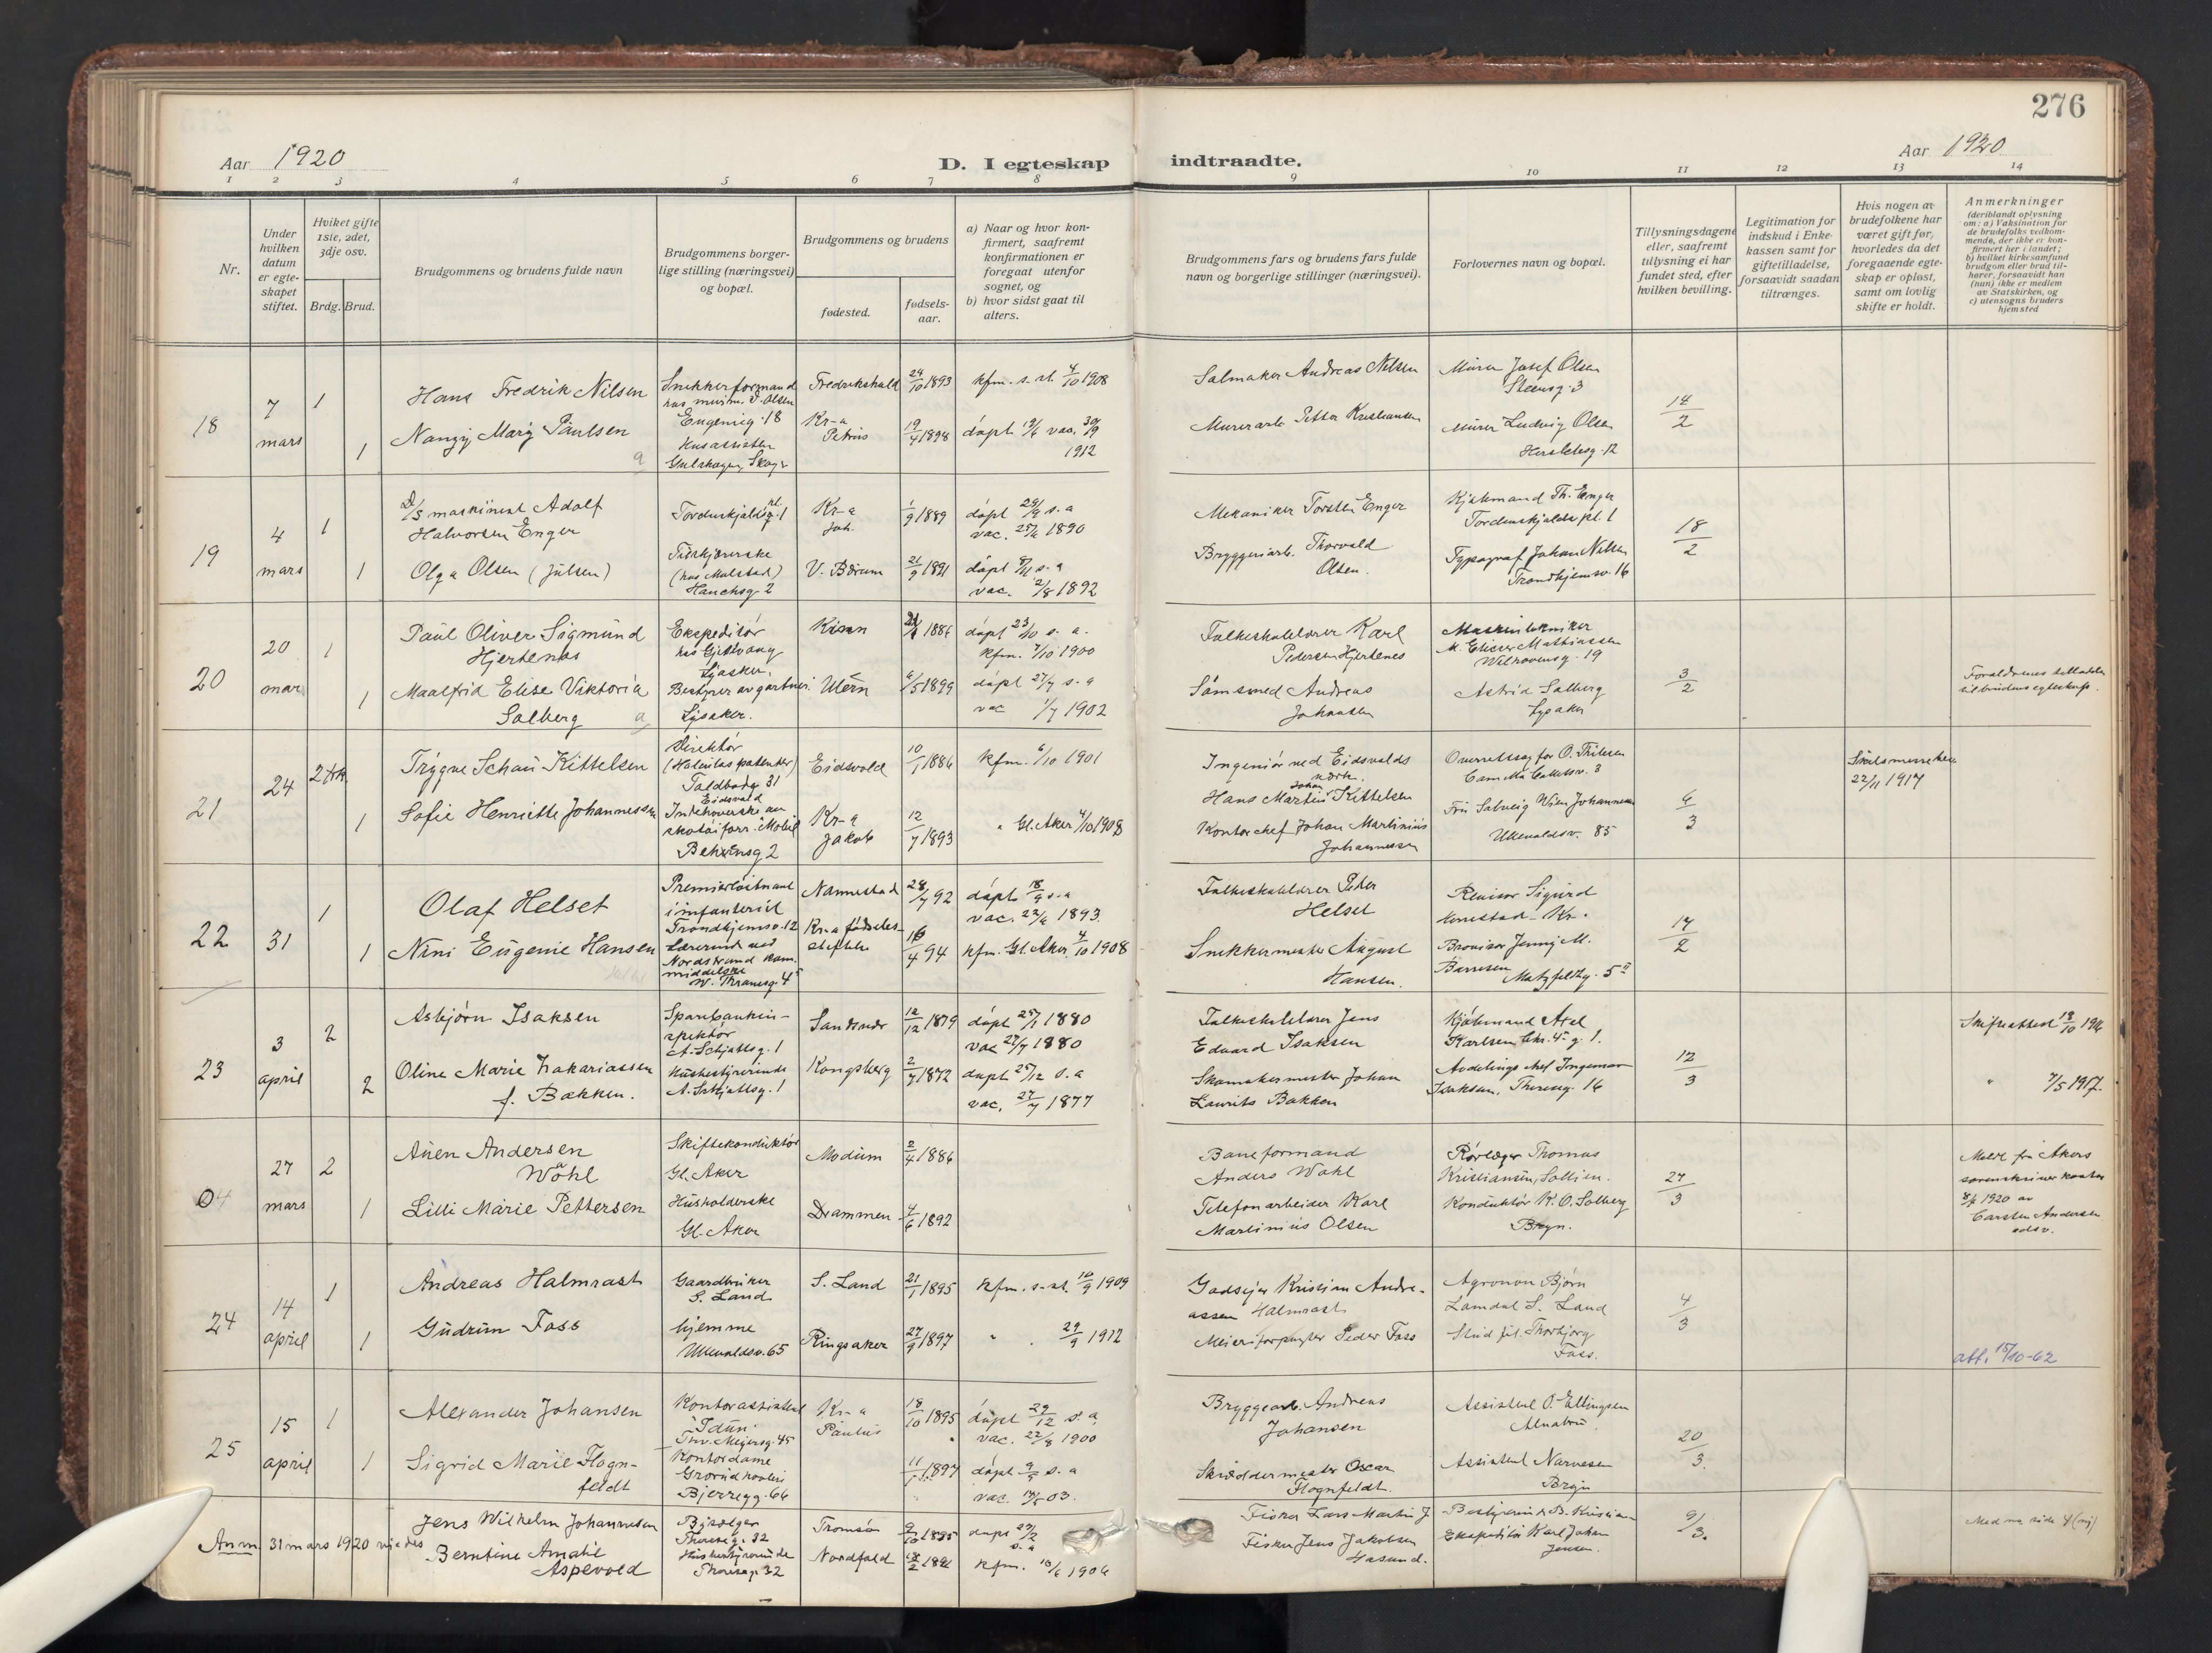 276
Aar 1920
D. I egteskap indtraadte.
Aar 1920
1 2 3 4 5 6 7 8 9 10 11 12 13 14
Nr.
Under hvilken datum er egteskapet stiftet.
Hviket gifte 1ste, 2det, 3dje osv.
Brdg. Brud.
Brudgommens og brudens fulde navn
Brudgommens borgerlige stilling (næringsvei) og bopæl.
Brudgommens og brudens
fødested.
fødselsaar.
a) Naar og hvor konfirmert, saafremt konfirmationen er foregaat utenfor sognet, og
b) hvor sidst gaat til alters.
Brudgommens fars og brudens fars fulde navn og borgerlige stillinger (næringsvei).
Forlovernes navn og bopæl.
Tillysningsdagene eller, saafremt tillysning ei har fundet sted, efter hvilken bevilling.
Legitimation for indskud i Enkekassen samt for giftetilladelse, forsaavidt saadan tiltrænges.
Hvis nogen av brudefolkene har været gift før, hvorledes da det foregaaende egteskap er opløst, samt om lovlig skifte er holdt.
Anmerkninger
(deriblandt oplysning om: a) Vaksination for de brudefolks vedkommende, der ikke er konfirmert her i landet;
b) hvilket kirkesamfund brudgom eller brud tilhører, forsaavidt han (hun) ikke er medlem av Statskirken, og
c) utensogns bruders hjemsted
18
7
mars
1
1
Hans Fredrik Nilsen
Nanzy Marg Paulsen
Snekkerformand
hos murm. J. Olsen
Eugenieg. 18
Husassistent
Fredrikshald
Kr-a
Petrus
24/10 1893
19/4 1898
kfm. s. st. 4/10 1908
døpt 19/6 vac. 30/9
1912
Salmaker Andreas Nilsen
Murerarb. Petter Kristiansen
Murer Josef Olsen
Steensg. 3
Murer Ludvig Olsen
Herslebsg. 12
14/2
19
4
mars
1
1
D/S maskinist Adolf
Halvorsen Enger
Olga Olsen (Julsen)
Tordenskjolds pl. 1
(hos Molstad)
Hauchsg 2
Kr-a
Joh.
V. Bærum
1/9 1889
21/9 1891
døpt 29/9 s. a
vac. 25/6 1890
døpt 8/11 s. a
vac. 2/8 1892
Mekaniker Torsten Enger
Bryggeriarb. Thorvald
Olsen.
Kjøbmand Th. Enger
Tordenskjolds pl. 1
Typograf Johan Nilsen
Trondhjemsv. 16
18/2
20
20
mar
1
1
Paul Oliver Sigmund
Hjertenes
Maalfrid Elise Viktoria
Solberg
Ekspeditør
hos Gjestvang
Lysaker.
Bestyrer av gartneri.
Lysaker.
Kinn
Ullern
1886
6/5 1899
døpt 23/10 s. a.
kfm. 7/10 1900
døpt 27/7 s. a
vac 1/7 1902
Folkeskolelærer Karl
Pedersen Hjertenes
Sømsmed Andreas
Johansen
Maskintekniker
M. Elieser Mathiassen
19
Astrid Solberg
Lysaker
3/2
Forældrenes tilladelse
til brudens egteskap.
21
24
2 frk
1
Trygve Schau Kittelsen
Sofie Henriette Johannessen
Direktør
(Halvitas patenter)
Toldbodg 31
Eidsvold
Behrensg 2
Eidsvold
Kr-a
Jakob
10/1 1886
12/7 1893
kfm. 6/10 1901
" Gl. Aker 4/10 1908
Ingeniør ved Eidsvolds
værk.
Johan
Hans Martin Kittelsen
Kontorchef Johan Martinius
Johannessen
Overretssagfør O. Thilesen
Camilla Collettsv. 3
Fru Solveig Wien Johannessen
Ullevoldsv. 85
6/3
22/11 1917
22
31
1
1
Olaf Helset
Nini Eugenie Hansen
Premierløitnant
i infanteriet
Trondhjemsv. 12
Lærerinde ved
Nordstrand kom.
middelsk.
W. Thranesg. 45
Nannestad
Kr-a fødselsstiftelse
28/7 92
16/4 94
døpt 18/9 s. a
vac. 22/6 1893
kfm. Gl. Aker 4/10 1908
Folkeskolelærer Peter
Helset
Snekkermester August
Hansen.
Revisor Sigurd
Provisor Jenny M.
Motzfeldtsg. 5 II
14/2
23
3
april
2
2
Asbjørn Isaksen
Oline Marie Zakariassen
f. Bakken.
Sparebankinspektør
A. Schjøttsg. 1
Husbestyrerinde
A. Schjøttsg. 1
Sandnes
Kongsberg
12/12 1879
2/7 1872
døpt 25/1 1880
vac 27/7 1880
døpt 25/12 s. a
vac. 27/7 1877
Folkeskolelærer Jens
Edvard Isaksen
Skomakermester Johan
Laurits Bakken
Kjøbmand Axel
Karlsen Chr. 4. g. 1.
Avdelingschef Ingemar
Isaksen, Theresg. 16
12/3
Skifteattest 13/10 1916
" 7/5 1917.
04
27
mars
2
1
Auen Andersen
Wåhl
Lilli Marie Pettersen
Skiftekonduktør
Gl. Aker
Husholderske
Gl. Aker
Modum
Drammen
2/4 1886
4/6 1892
Baneformand
Anders Wåhl
Telefonarbeider Karl
Martinius Olsen
Rørlægger Thomas
Kristiansen,
Konduktør K. O. Solberg
Bryn.
27/3
Meldt fra Akers
sorenskriverkontor
1920 av
Carsten Andersen
edsv.
24
14
april
1
1
Andreas Halmrast
Gudrun Foss
Gaardbruker
S. Land
hjemme
Ullevoldsv. 65
S. Land
Ringsaker
21/1 1895
27/9 1897
kfm. s. st. 10/9 1909
" . 29/9 1912
Godseier Kristian Andreassen
Halmrast
Meieriforpagter Peder Foss
Agronom Bjørn
Lomdal S. Land
Stud. fil. Thorbjørg
Foss.
4/3
att. 15/10-62
25
15
april
1
1
Alexander Johansen
Sigrid Marie Flognfeldt
Kontorassistent
"Idun"
Thv. Meyersg. 45
Kontordame
Bjerregg. 66
Kr-a
Paulus
"
18/10 1895
1897
døpt 29/12 s. a
vac. 22/8 1900
døpt s. a
vac. 03.
Bryggearb. Andreas
Johansen
Skræddermester Oscar
Flognfeldt.
Assistent O. Ellingsen
Alnabru
Assistent Narvesen
Bryn
20/3.
Anm. 31 mars 1920 viedes
Jens Wilhelm Johannesen
Berntine Amalie
Aspevold
Theresg. 32
Husbestyrerinde
Theresg. 32
Tromsø
Nordfold
1895
1891
døpt
s. a
kfm. 1906
Fisker Lars Martin J
Fisker Jens Jakobsen
Ekspeditør Karl Johan
Jensen.
9/3.